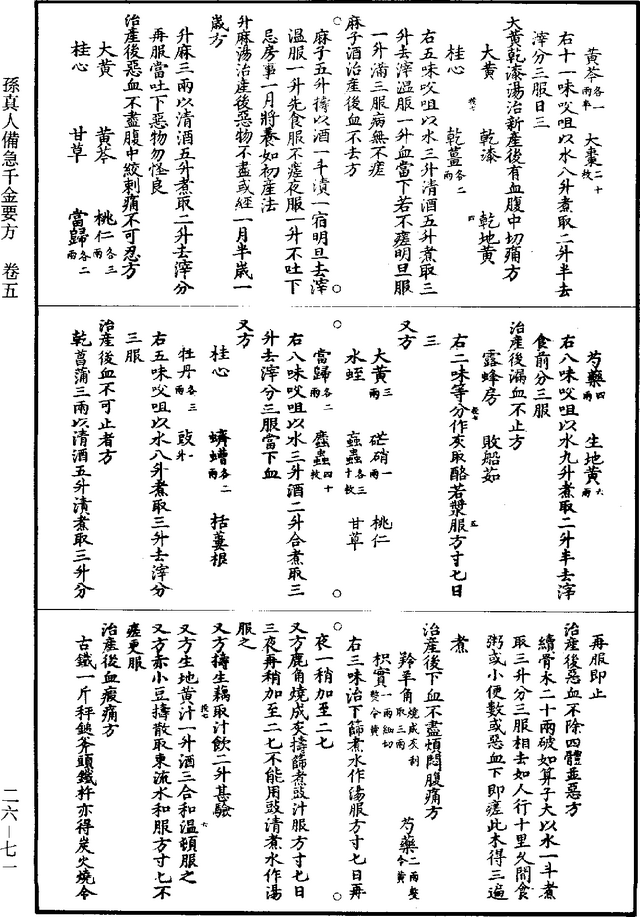 黃芩各一兩半　大棗二十枚
右十一味㕮咀以水八升煮取二升半去
滓分三服日三
大黃乾漆湯治新產後有血腹中切痛方
大黃　乾漆　乾地黃
桂心　乾薑各二兩
右五味㕮咀以水三升清酒五升煮取三
升去滓溫服一升血當下若不瘥明旦服
一升滿三服病無不瘥
麻子酒治產後血不去方
麻子五升擣以酒一斗漬一宿明旦去滓
溫服一升先食服不瘥夜服一升不吐下
忌房事一月將養如初產法
升麻湯治產後惡物不盡或經一月半歲一
歲方
升麻三兩以清酒五升煮取二升去滓分
再服當吐下惡物勿怪良
治產後惡血不盡腹中絞刺痛不可忍方
大黃　黃芩　桃仁各三兩
桂心　甘草　當歸各二兩
芍藥四兩　生地黃六兩
右八味㕮咀以水九升煮取二升半去滓
食前分三服
治產後漏血不止方
露蜂房　敗船茹
右二味等分作灰取酪若漿服方寸七日
三
又方
大黃三兩　芒硝一兩　桃仁
水蛭　蝱蟲各三十枚　甘草
當歸各二兩　䗪蟲四十枚
右八味㕮咀以水三升酒二升合煮取三
升去滓分三服當下血
又方
桂心　蠐螬各二兩　栝蔞根
牡丹各三兩　豉一升
右五味㕮咀以水八升煮取三升去滓分
三服
治產後血不可止者方
乾菖蒲三兩以清酒五升漬煮取三升分
再服即止
治產後惡血不除四體並惡方
續骨木二十兩破如算子大以水一斗煮
取三升分三服相去如人行十里久間食
粥或小便數或惡血下即瘥此木得三遍
煮
治產後下血不盡煩悶腹痛方
羚羊角燒成灰刮取三兩　芍藥二兩熬令黃
枳實一兩細切熬令黃
右三味治下篩煮水作湯服方寸七日再
夜一稍加至二七
又方鹿角燒成灰擣篩煮豉汁服方寸七日
三夜再稍加至二七不能用豉清煮水作湯
服之
又方擣生藕取汁飲二升甚驗
又方生地黃汁一升酒三合和溫頓服之
又方赤小豆擣散取東流水和服方寸七不
瘥更服
治產後血瘕痛方
古鐵一斤秤鎚斧頭鐵杵亦得炭火燒令
孫真人備急千金要方　卷五
二六—七一